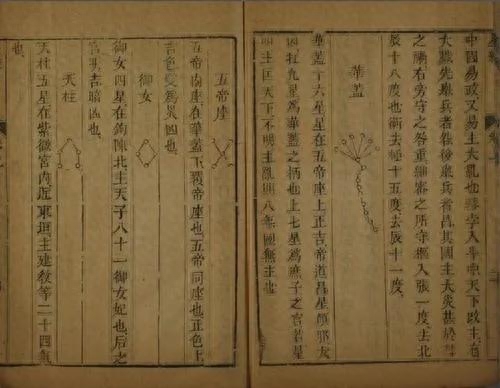 中國易政又易主大亂也孛入斗中天下改主有
大戮先舉兵者咎後舉兵者昌其國主大災甚於彗
之禍右旁守之咎重細審之所守樞入張一度去北
辰十八度也衡去極十五度去辰十一度
華蓋
華蓋十六星在五帝座上正吉帝道昌星傾邪大
凶杠九星為華蓋之柄也上七星為庶子之官若星
明主匡天下不明主亂期八年國無主也
五帝座
五帝內座在華蓋下覆帝座也五帝同座也正色上
吉色變為災凶也
御女
御女四星在鉤陳北主天子八十一御女妃也后之
官明吉暗凶也
天柱
天柱五星在紫微宮內近東垣主建教等二十四氣
也